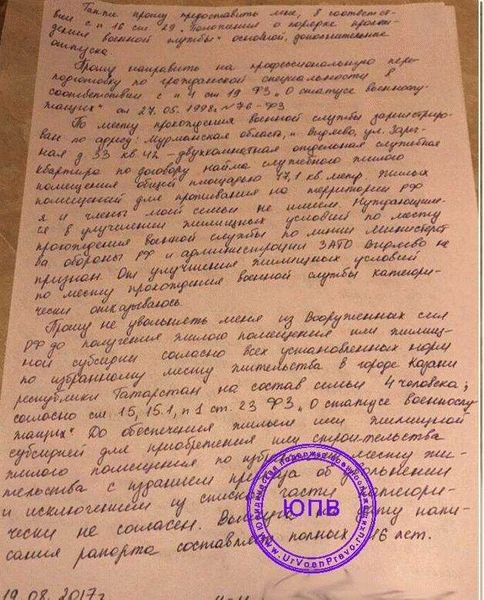 Также прошу предоставить мне, в соответст-
вии с п 16 ст. 29 „Положения о порядке прохож-
дения военной службы" основной, дополнительные
отпуска
Прошу направить на профессиональную пере-
подготовку по гражданской специальности в
соответствии с п 1 ст 19 ФЗ „О статусе военнослу-
жащих" от 27.05.1998г N76-ФЗ
По месту прохождения военной службы зарегистриро-
ван по адресу: Мурманская область, п. Видяево, ул. Зареч-
ная д 33 кв 42 - двухкомнатная отдельная служебная
квартира по договору найма служебного жилого
помещения общей площадью 47,1 кв метр. Жилых
помещений для проживания на территории РФ
я и члены моей семьи не имеем. Нуждающим-
ся в улучшении жилищных условий по месту
прохождения военной службы по линии Министерст
ва обороны РФ и администрации ЗАТО Видяево не
признан. От улучшения жилищных условий
по месту прохождения военной службы категори-
чески отказываюсь.
Прошу не увольнять меня из Вооруженных сил
РФ до получения жилого помещения или жилищ-
ной субсидии согласно всех установленных норм
по избранному месту жительства в городе Казани
республики Татарстан на состав семьи 4 человека;
согласно ст. 15, 15.1, п 1 ст. 23 ФЗ „О статусе военнослу
жащих" До обеспечения жильем или жилищной
субсидией для приобретения или строительства
жилого помещения по избранному месту жи-
тельства с изданием приказа об увольнении
и исключением из списков части категори-
чески не согласен. Выслуга на дату напи-
сания рапорта составляет полных 16 лет.
19.08.2017г
ЮПВ
Юридическая поддержка военнослужащих
www.UrVoenPravo.ru